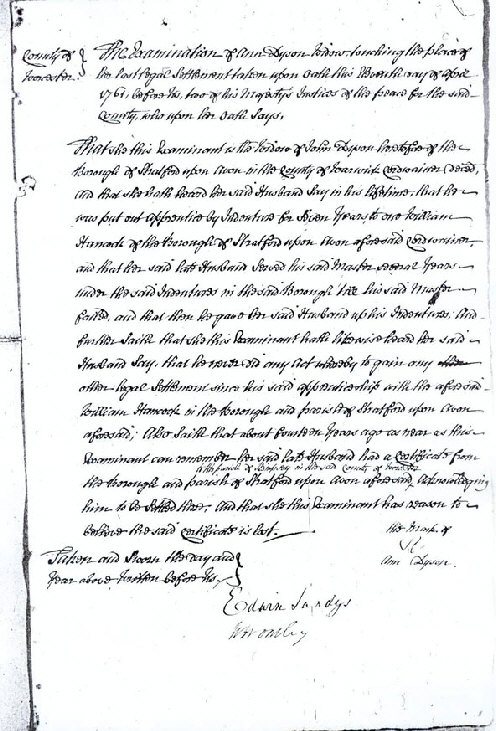 County of Worcester } The Examination of Ann Dyson Widow, touching the place of
her last legal Settlement taken upon Oath this day of April
1761, before Us, two of his Majestys Justices of the peace for the said
County, who upon her Oath Says,
That she this Examinant is the Widow of John Dyson heretofore of the
Borough of Stratford upon Avon in the County of Warwick Cordwainer decd,
and that she hath heard her said Husband Say in his lifetime, that he
was put out apprentice by Indenture for Seven Years to one William
Hancock of the Borough of Stratford upon Avon aforesaid Cordwainer,
and that her said late Husband Served his said Master several Years
under the said Indentures in the said Borough till his said Master
failed, and that then he gave her said Husband up his Indentures, And
further Saith that she this Examinant hath likewise heard her said
Husband Say, that he never did any Act whereby to gain any
other legal Settlement since his said apprenticeship with the aforesaid
William Hancock in the Borough and parish of Stratford upon Avon
aforesaid; Also Saith that about fourteen Years ago as near as this
Examinant can remember her said late Husband had a Certificate from
the Borough and parish of Stratford upon Avon aforesaid, acknowledging
parish of in the said County of Worcester
him to be Settled there, And that she this Examinant has reason to
believe the said Certificate is lost.
the Mark of
Ann Dyson.
Taken and Sworn the day and
Year above written before Us,
Edwin Sandys
W Bromley